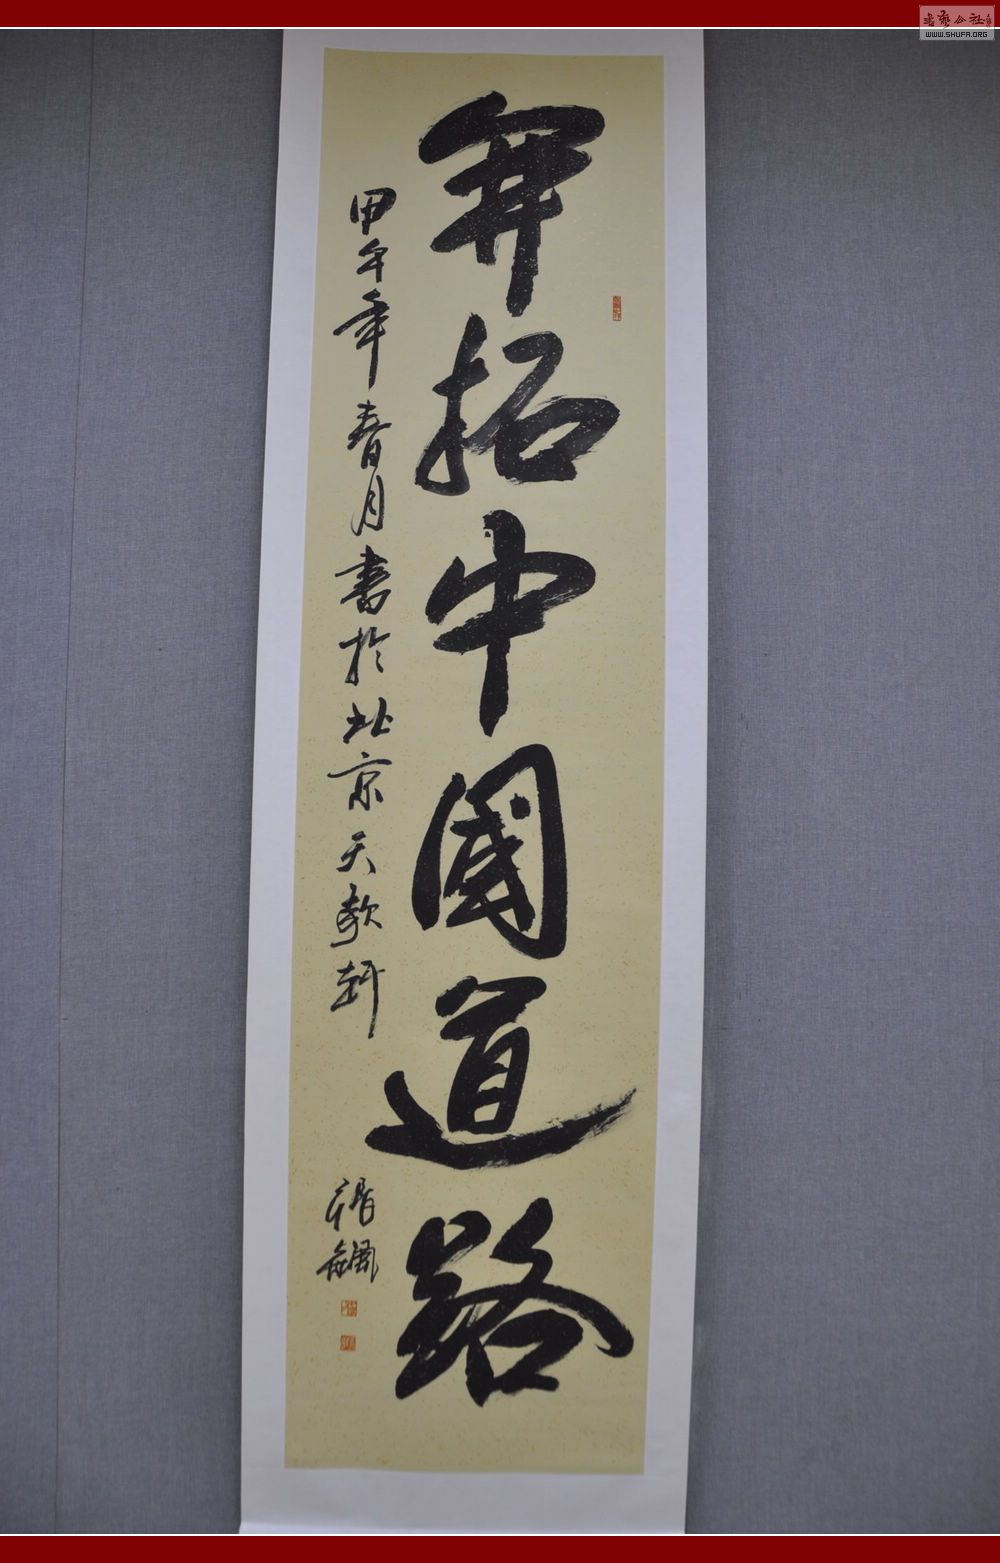 開拓中國道路
甲午年春月書於北京天歌軒
福鋼
書藝公社
WWW.SHUFA.ORG